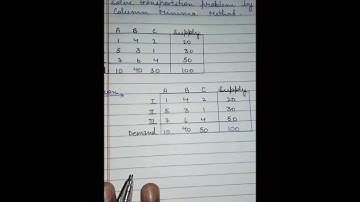 Solve transportation problem by
Column Minima Method.
A B C Supply
1 4 2 20
5 3 1 30
7 6 4 50
10 40 50 100
A B C Supply
I 1 4 2 20
II 5 3 1 30
III 7 6 4 50
Demand 10 40 50 100